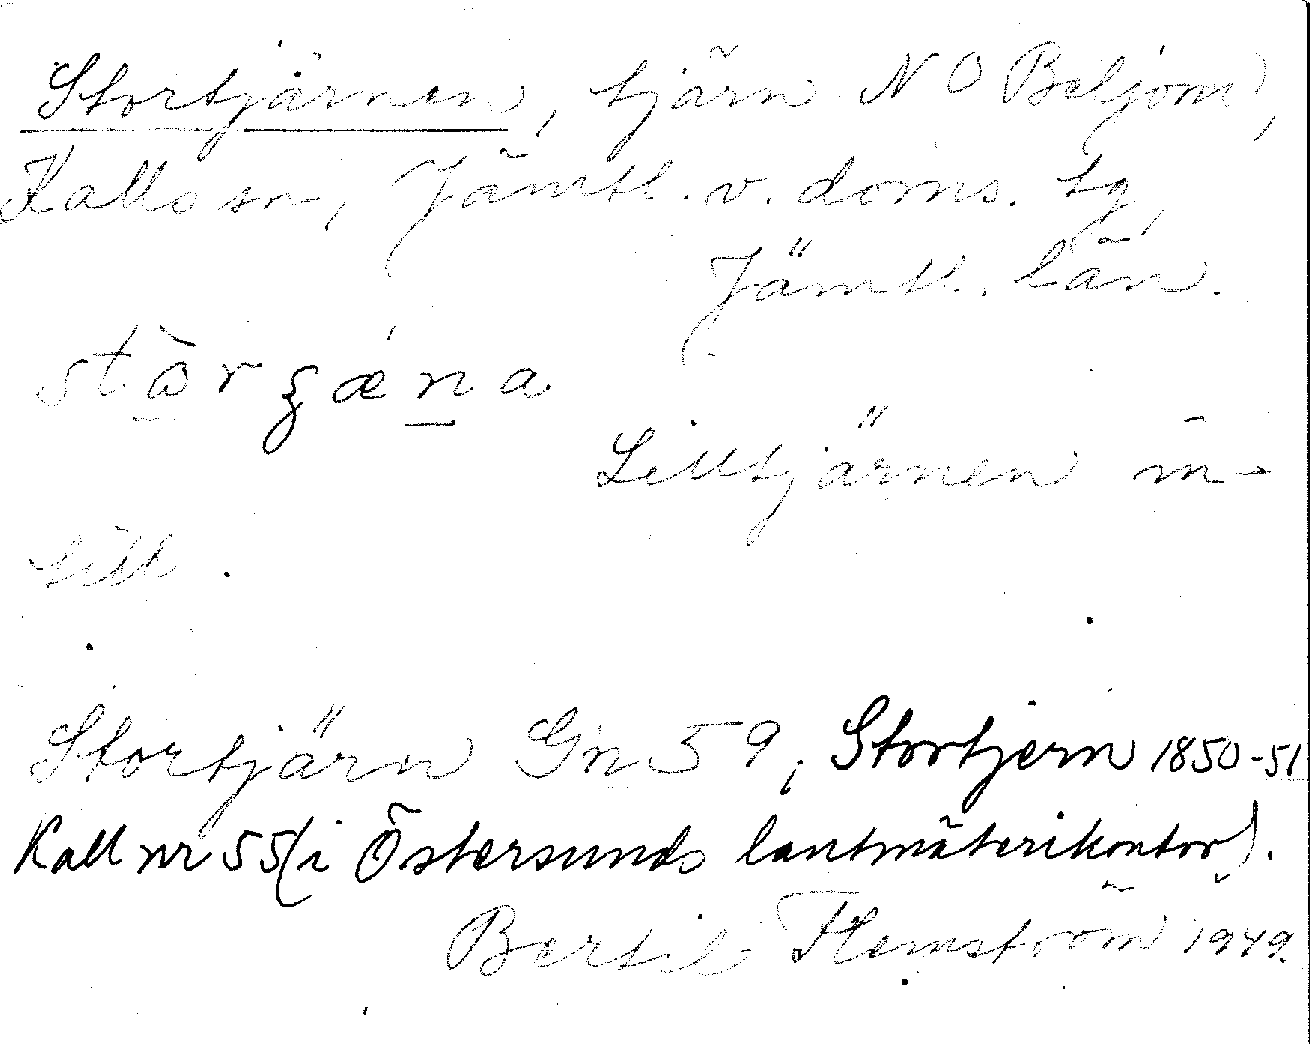 Stortjärnen, tjärn NO Baljom,
Kalls sn, Jämtl. v. doms. tg,
Jämtl. län.
stòrʒǽna
Lilltjärnen in-
till.
Stortjärn Gn 59; Stortjern 1850-51
Kall nr 55 (i Östersunds lantmäterikontor).
Bertil Flemström 1949.